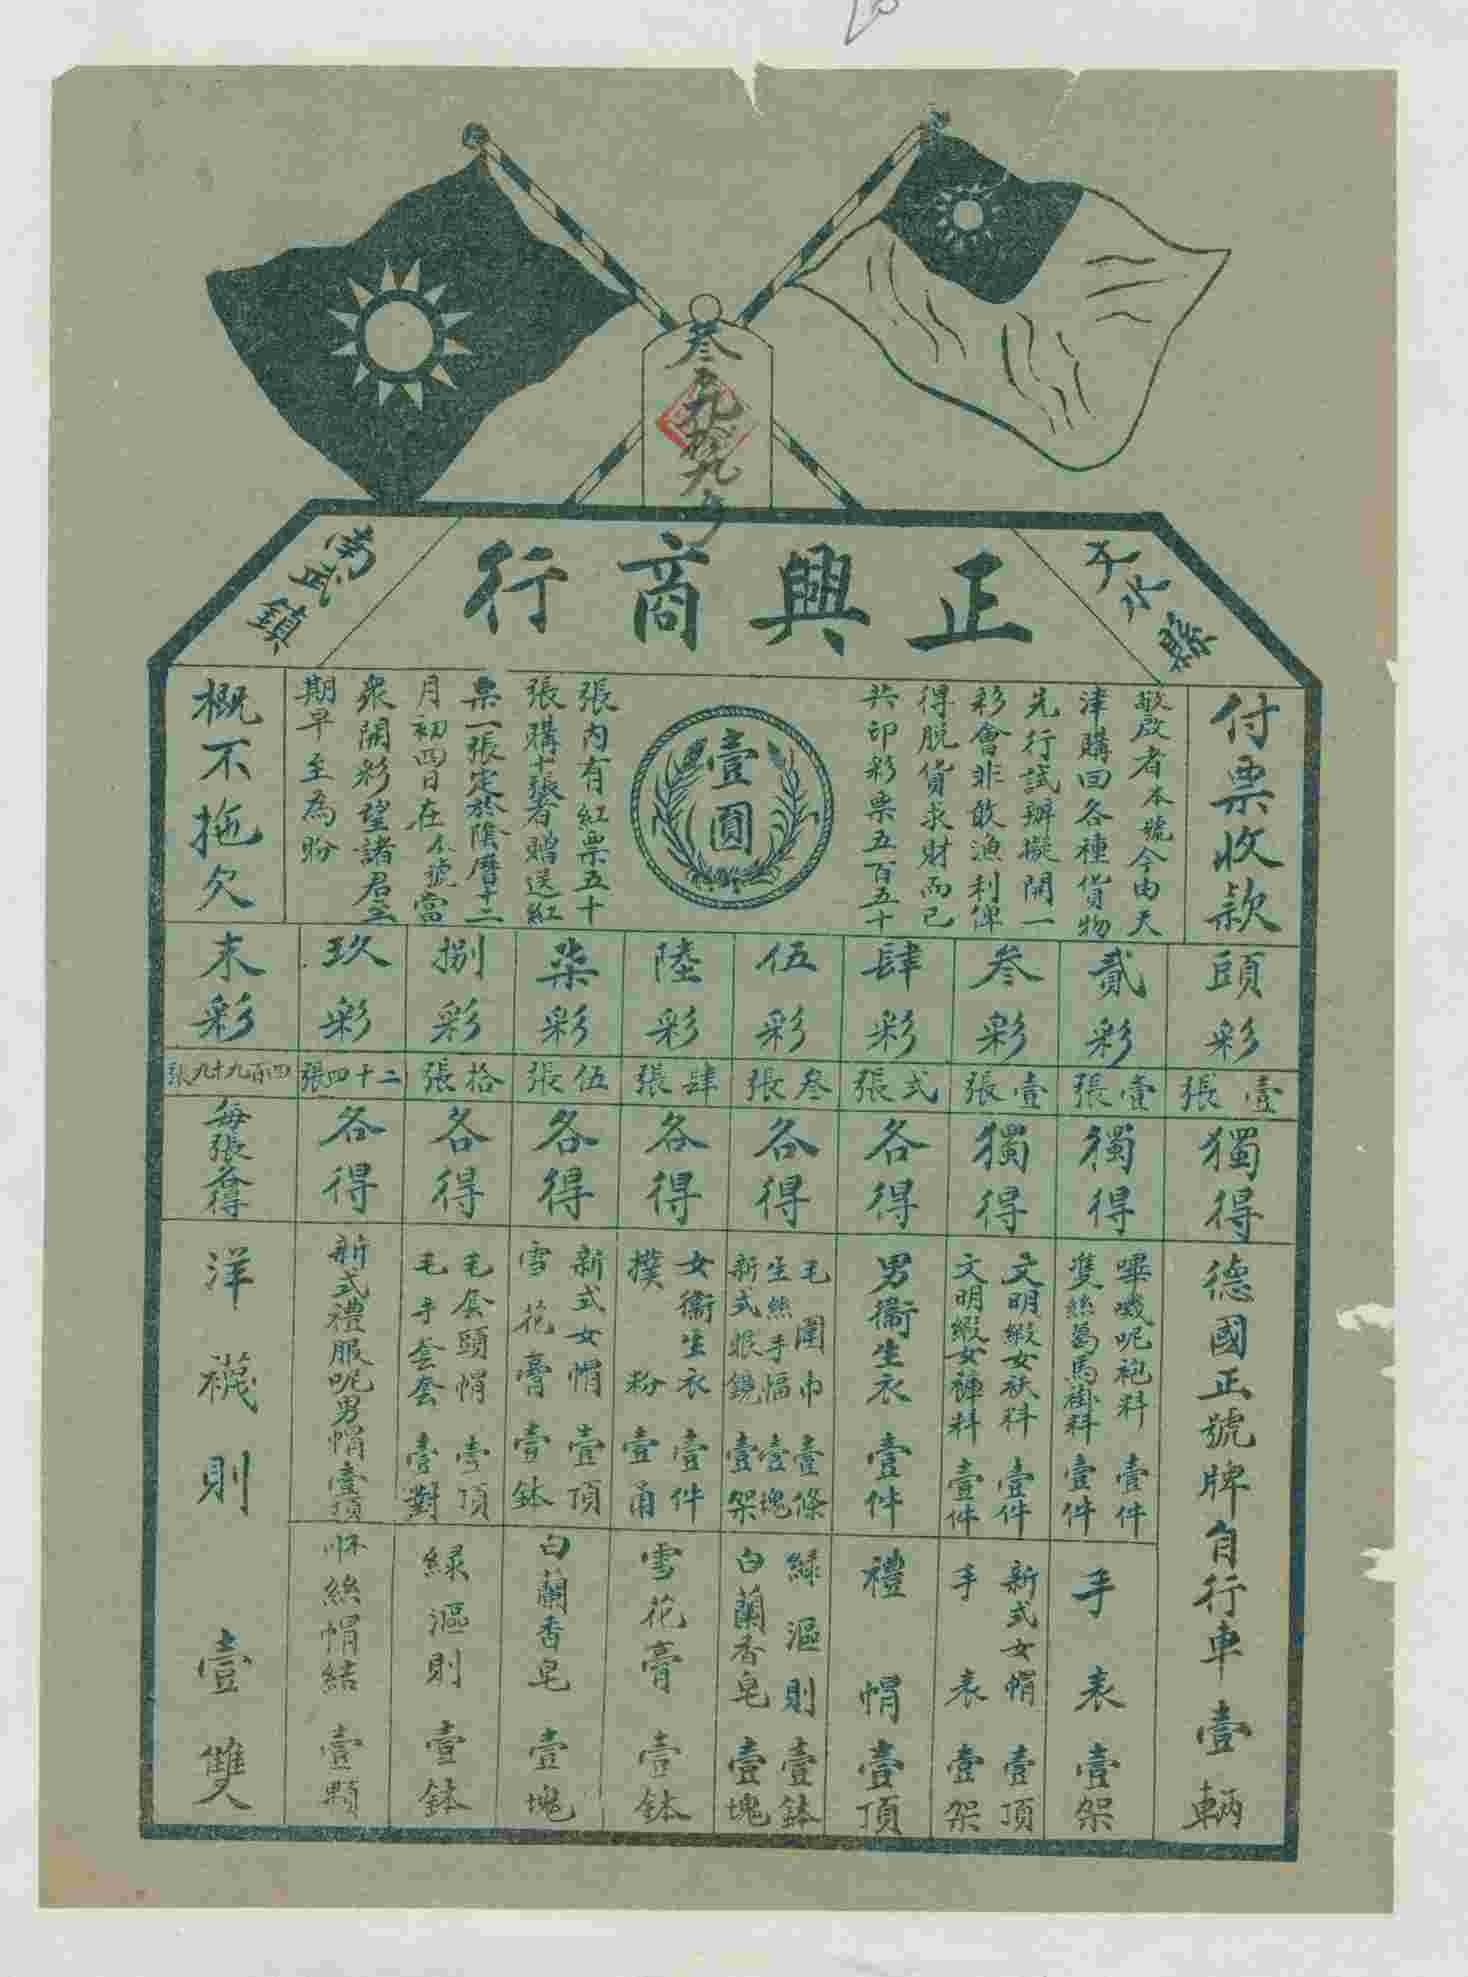 叁百九拾九号
正興商行
平水縣
南武鎮
付票收款
敬啟者本號今由天
津購回各種貨物
先行試辦擬開一
彩會非敢漁利俾
得脫貨求財而已
共印彩票五百五十
壹圓
張內有紅票五十
張購十張者贈送紅
票一張定於陰曆十二
月初四日在本號當
衆開彩望諸君至
期早至為盼
概不拖欠
頭彩
壹張
獨得
德國正號牌自行車壹輛
貳彩
壹張
獨得
嗶嘰呢袍料壹件
雙絲葛馬褂料壹件
手表壹架
叁彩
壹張
獨得
文明緞女袄料壹件
文明緞女褲料壹件
新式女帽壹頂
手表壹架
肆彩
弍張
各得
男衛生衣壹件
禮帽壹頂
伍彩
叁張
各得
毛圍巾壹條
生絲手幅壹塊
新式眼鏡壹架
綠漚則壹鉢
白蘭香皂壹塊
陸彩
肆張
各得
女衛生衣壹件
撲粉壹甬
雪花膏壹鉢
柒彩
伍張
各得
新式女帽壹頂
雪花膏壹鉢
白蘭香皂壹塊
捌彩
拾張
各得
毛套頭帽壹頂
毛手套套壹對
綠漚則壹鉢
玖彩
二十四張
各得
新式禮服呢男帽壹頂
絲帽結壹顆
末彩
四百九十九張
每張各得
洋襪則壹雙